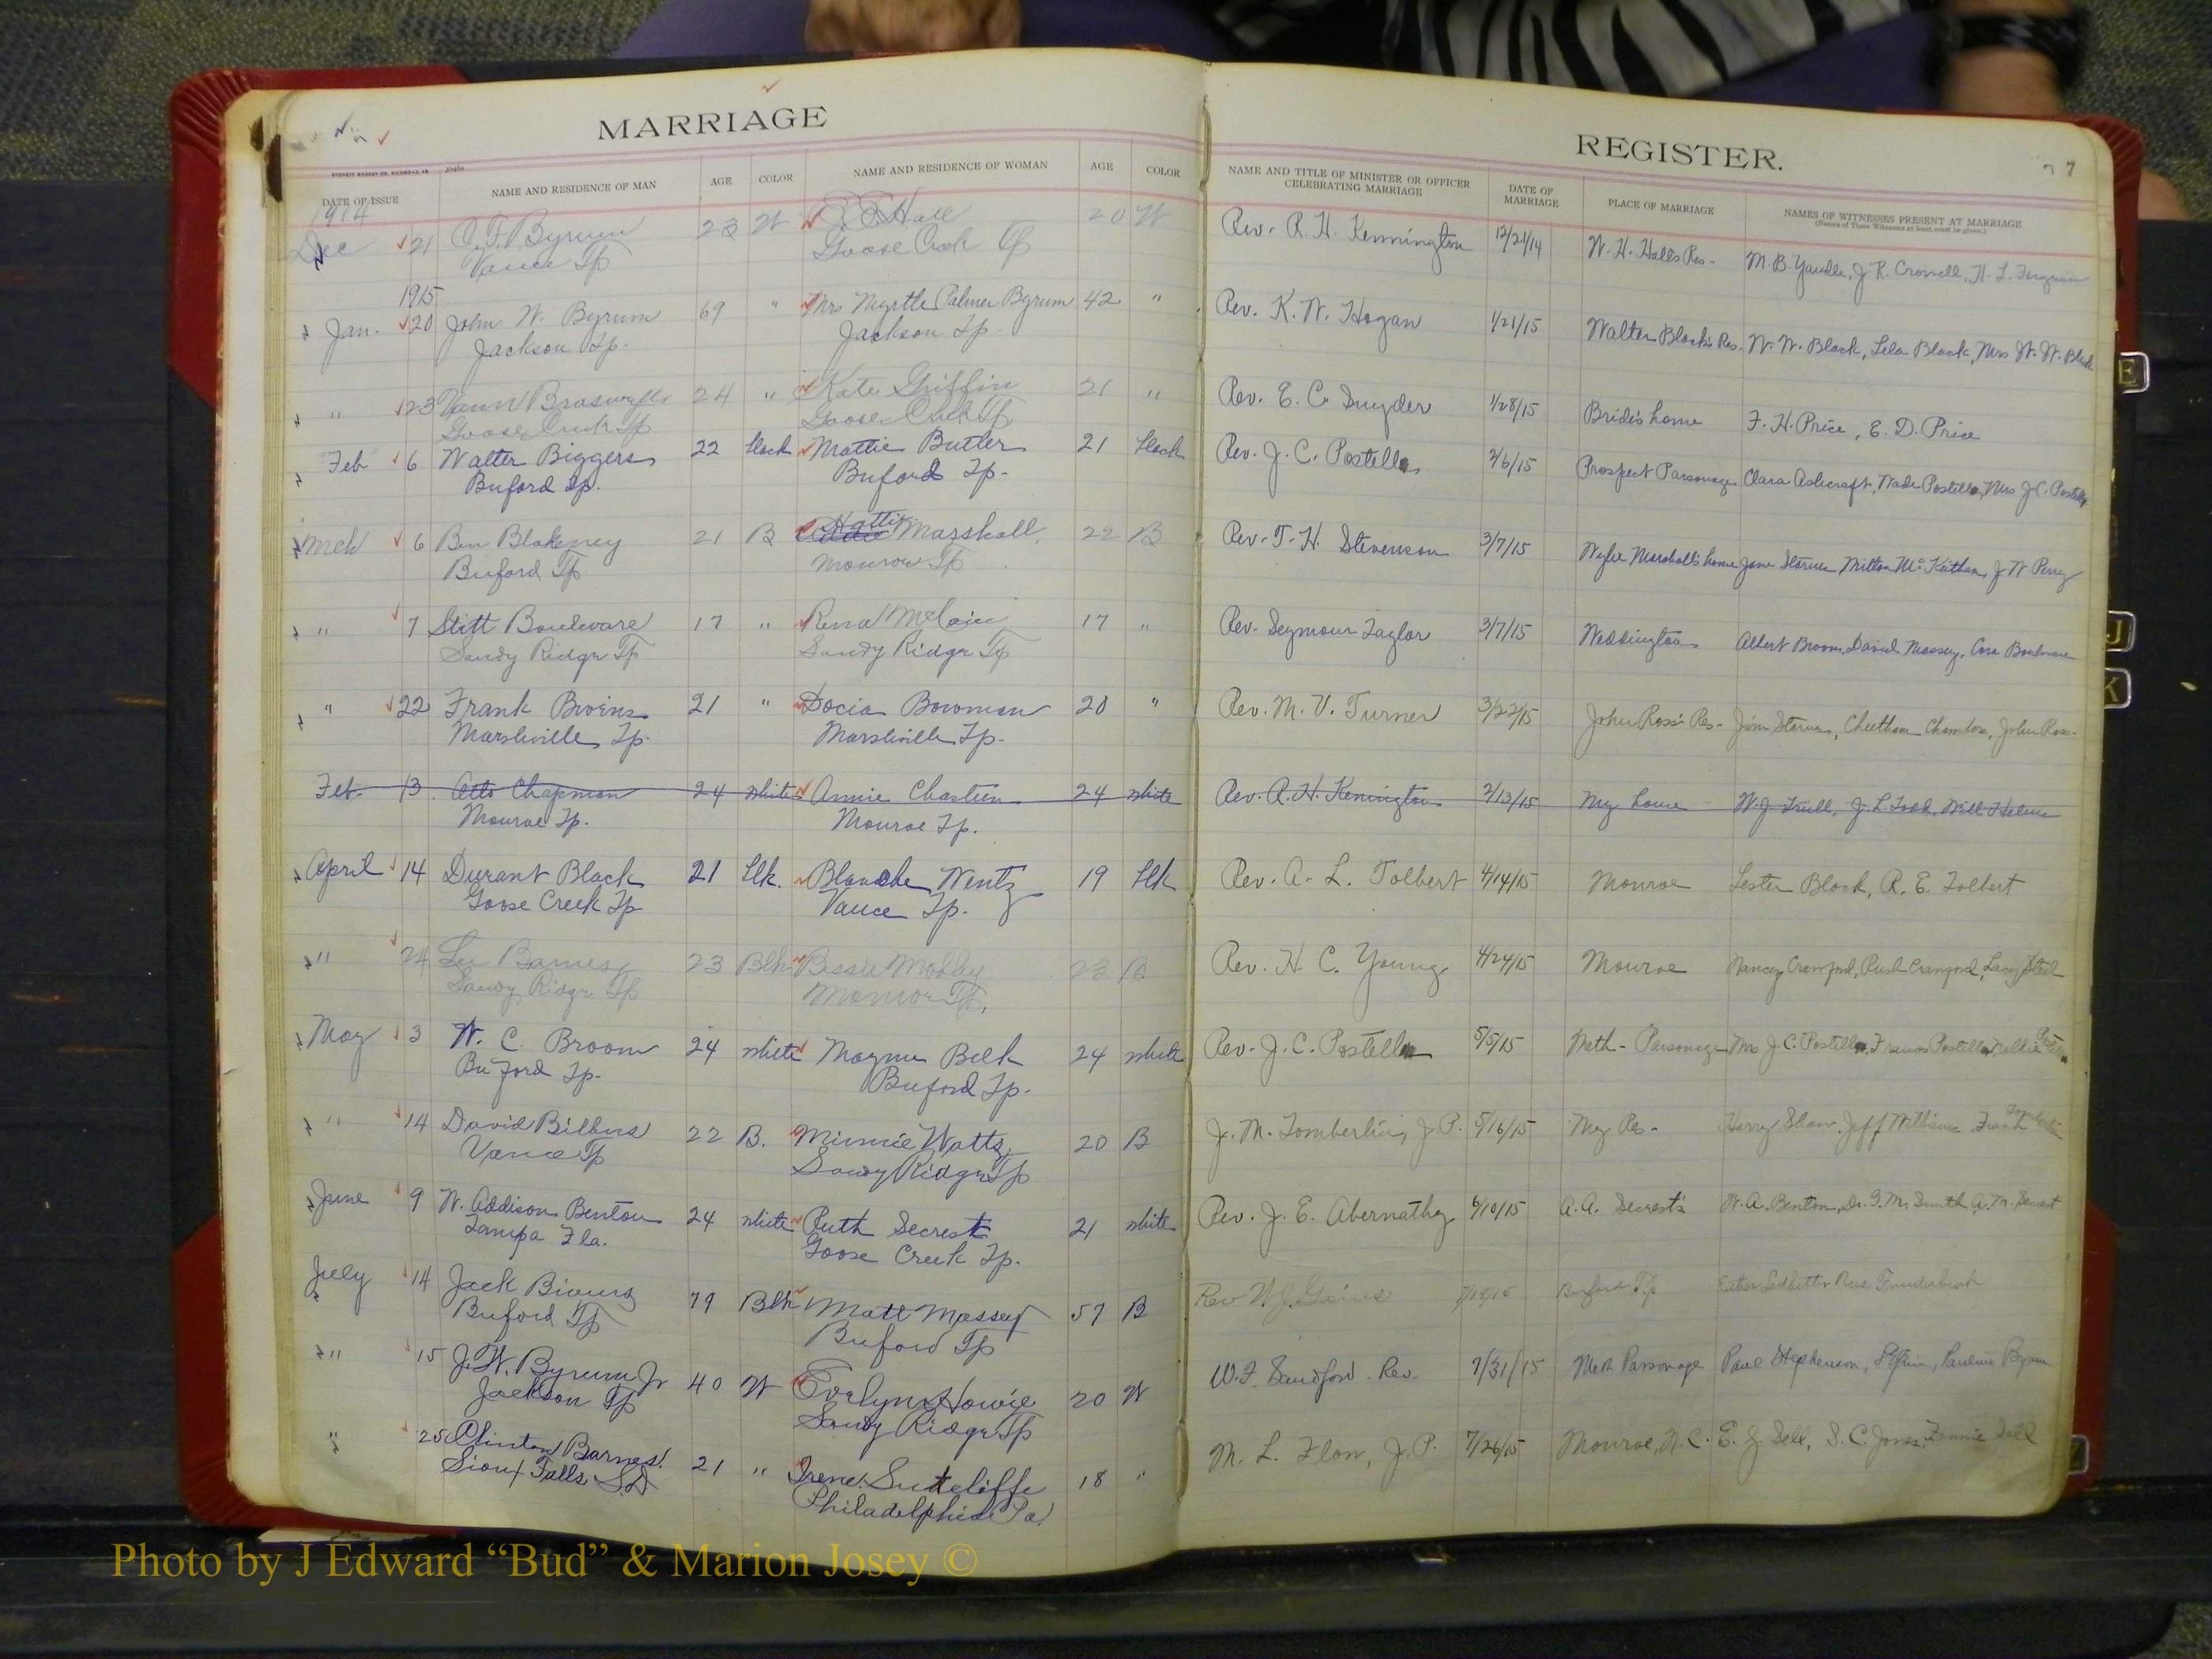 MARRIAGE
DATE OF ISSUE NAME AND RESIDENCE OF MAN AGE COLOR NAME AND RESIDENCE OF WOMAN AGE COLOR
1914
Dec 21 C. F. Byrum 23 W Hall 20 W
Vance Tp Goose Creek Tp
1915
Jan. 20 John W. Byrum 69 " Mrs Myrtle Palmer Byrum 42 "
Jackson Tp. Jackson Tp.
" 23 Vann Braswell 24 " Kate Griffin 21 "
Goose Creek Tp Goose Creek Tp
Feb 6 Walter Biggers 22 black Mattie Butler 21 black
Buford Tp. Buford Tp.
Mch 6 Ben Blakeney 21 B Hattie Marshall 22 B
Buford Tp Monroe Tp
" 7 Stitt Boulware 17 " Rena McCain 17 "
Sandy Ridge Tp Sandy Ridge Tp
" 22 Frank Bivens 21 " Docia Bowman 20 "
Marshville Tp. Marshville Tp.
Feb. 13 Otto Chapman 24 white Annie Chasteen 24 white
Monroe Tp. Monroe Tp.
April 14 Durant Black 21 blk. Blanche Wentz 19 blk
Goose Creek Tp Vance Tp.
" 24 Lee Barnes 23 Blk Bessie 23 B
Sandy Ridge Tp Monroe Tp.
May 3 W. C. Broom 24 white Belk 24 white
Buford Tp. Buford Tp.
" 14 David 22 B. Minnie Watts 20 B
Vance Tp Sandy Ridge Tp
June 9 W. Addison Benton 24 white Ruth Secrest 21 white
Tampa Fla. Goose Creek Tp.
July 14 Jack Bivens 79 Blk Matt Massey 57 B
Buford Tp Buford Tp
" 15 J. W. Byrum Jr 40 W Evelyn Howie 20 W
Jackson Tp Sandy Ridge Tp
" 25 Clinton Barnes 21 " Irene Sutcliffe 18 "
Sioux Falls S.D. Philadelphia Pa.
REGISTER.
7
NAME AND TITLE OF MINISTER OR OFFICER CELEBRATING MARRIAGE DATE OF MARRIAGE PLACE OF MARRIAGE NAMES OF WITNESSES PRESENT AT MARRIAGE
(Names of Three Witnesses at least must be given.)
Rev. R. H. Kennington 12/21/14 W. H. Halls Res- M. B. Yandle, J. R. Crowell, H. L. Ferguson
Rev. K. W. Hogan 1/21/15 Walter Black's Res. W. W. Black, Lela Black, Mrs W. W. Black
Rev. E. C. Snyder 1/28/15 Bride's home F. H. Price, E. D. Price
Rev. J. C. Postell 2/6/15 Prospect Parsonage Clara Ashcraft, Wade Postell, Mrs J. C. Postell
Rev. T. H. Stevenson 3/7/15 Marshall's home Jane Starnes, Milton J W Perry
Rev. Seymour Taylor 3/7/15 Weddington Albert Broom, David Massey, Cora Boulware
Rev. M. V. Turner 3/22/15 John Ross's Res- Jim Starnes, Cheetham Chambers, John Ross
Rev. R. H. Kennington 2/13/15 My home W. J. Trull, J. L. Todd, Will Helms
Rev. A. L. Tolbert 4/14/15 Monroe Lester Black, R. E. Tolbert
Rev. H. C. Young 4/24/15 Monroe Nancy Crawford, Rush Crawford, Lacy
Rev. J. C. Postell 5/5/15 Meth- Parsonage Mrs J. C. Postell, Frances Postell, Postell
J. M. Tomberlin, J. P. 5/16/15 My Res- Harry Shaw, Jeff Williams Frank Tomberlin
Rev. J. E. Abernathy 6/10/15 A. A. Secrest's W. A. Benton, Dr. G. M. Smith A. M. Secrest
Rev W. J. Gaines 7/18/15 Buford Tp Ledbetter Funderburk
W. F. Sandford Rev. 7/31/15 Meth Parsonage Paul Stephenson, Pauline Byrum
M. L. Flow, J. P. 7/26/15 Monroe, N. C. E. Z. Sell, S. C. Jones, Fannie Sell
E
J
K
Photo by J Edward “Bud” & Marion Josey ©